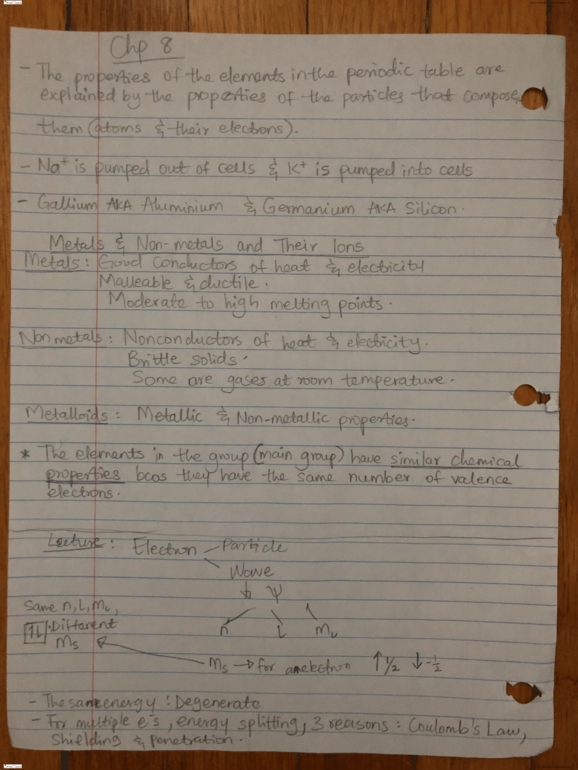 Chp 8
- The properties of the elements in the periodic table are
explained by the properties of the particles that compose
them (atoms & their electrons).
- Na+ is pumped out of cells & K+ is pumped into cells
- Gallium AKA Aluminium & Germanium AKA Silicon.
Metals & Non-metals and Their Ions
Metals: Good conductors of heat & electricity
Malleable & ductile.
Moderate to high melting points.
Nonmetals: Nonconductors of heat & electricity.
Brittle solids.
Some are gases at room temperature.
Metalloids: Metallic & Non-metallic properties.
* The elements in the group (main group) have similar chemical
properties bcos they have the same number of valence
electrons.
Lecture: Electron Particle
Wave
↓ Ψ
Same n, L, mL,
n L mL
↑↓ Different
ms
ms → for an electron ↑ 1/2 ↓ -1/2
- The same energy: Degenerate
- For multiple e's, energy splitting, 3 reasons: Coulomb's Law,
Shielding & penetration.